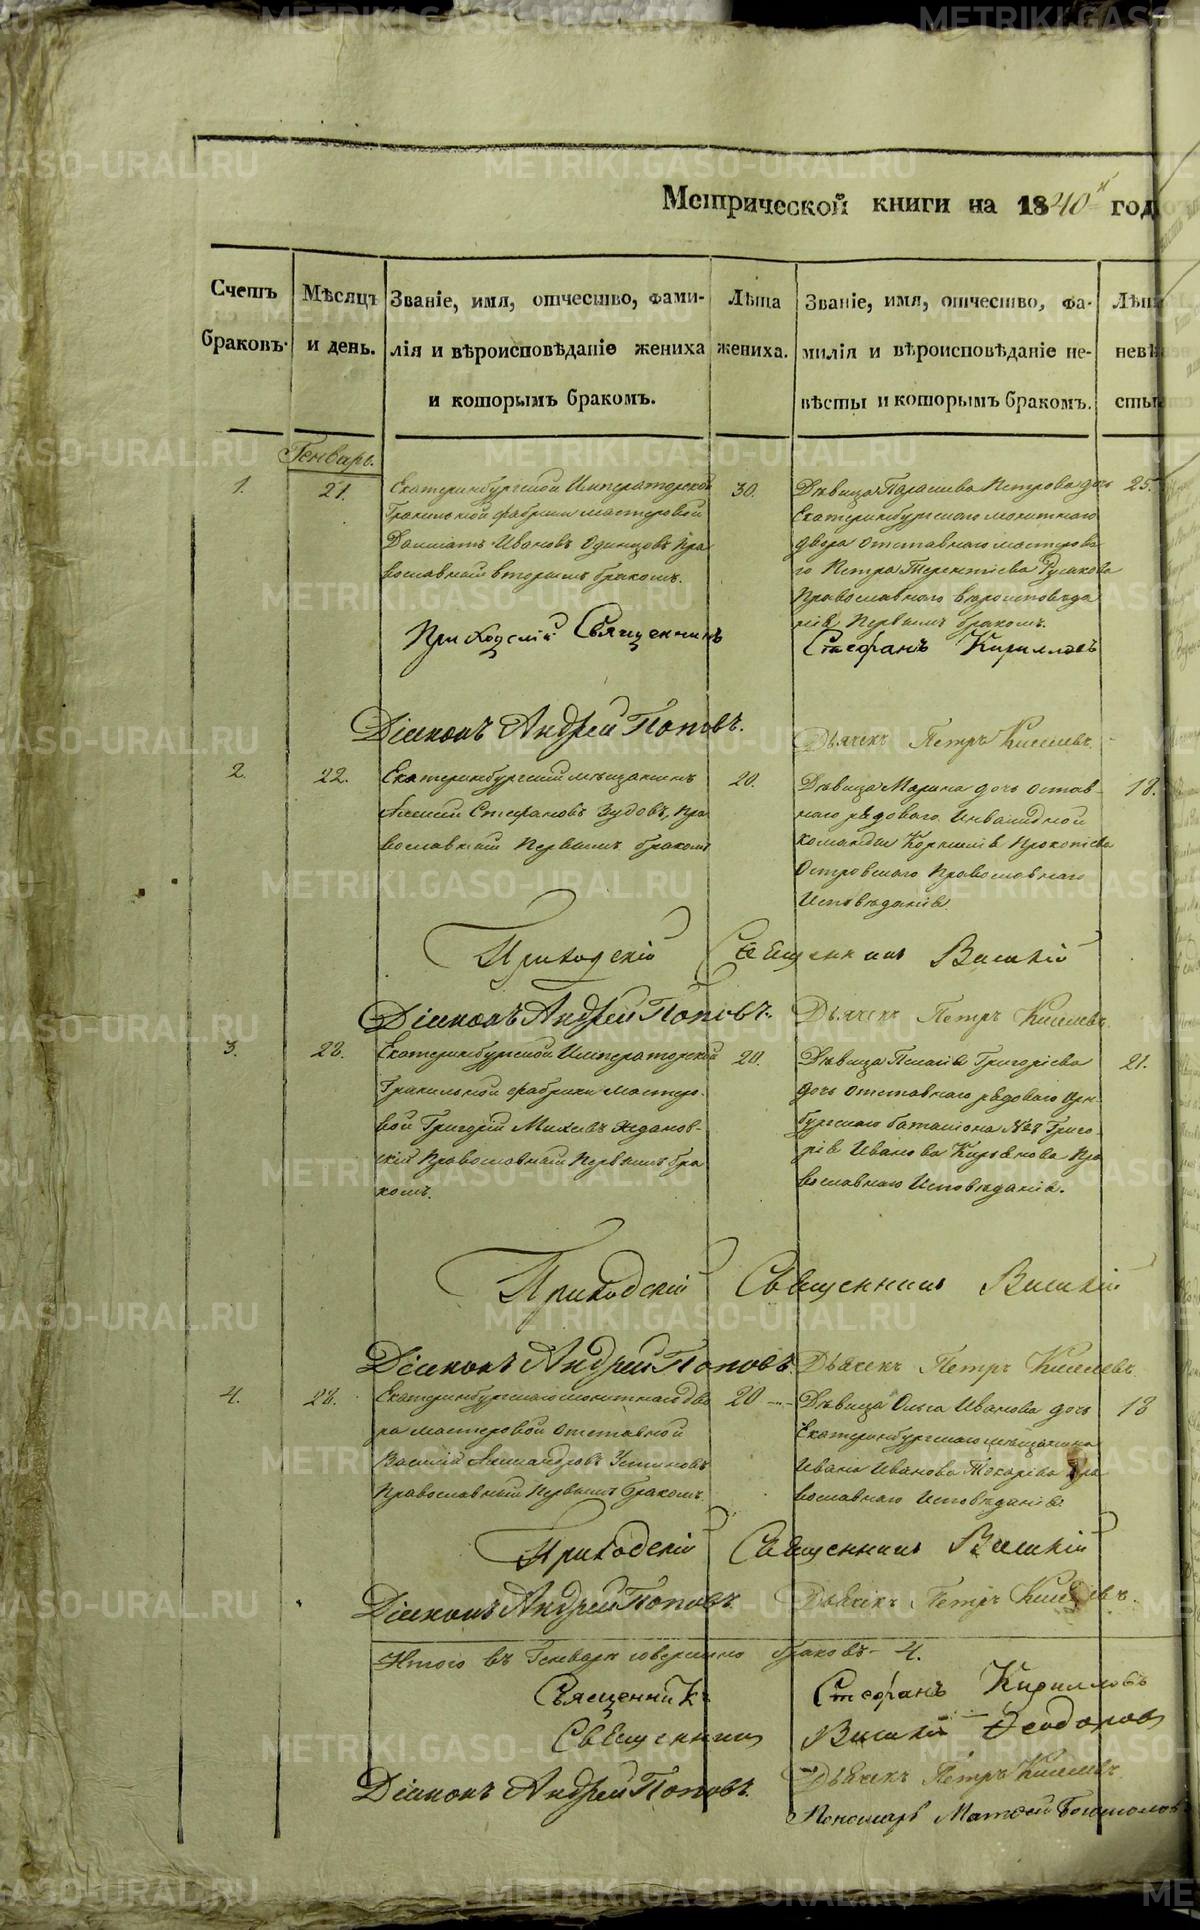 Метрической книги на 1840й год
Счетъ браковъ.
Мѣсяцъ и день.
Званіе, имя, отчество, фами-
лія и вѣроисповѣданіе жениха
и которымъ бракомъ.
Лѣта
жениха.
Званіе, имя, отчество, фа-
милія и вѣроисповѣданіе не-
вѣсты и которымъ бракомъ.
Лѣта
невѣ
сты
Генварь.
1.
21.
Екатеринбургской Императорской
Гранильной фабрики мастеровой
Далматъ Ивановъ Одинцовъ Пра
вославный вторымъ бракомъ.
30.
Дѣвица Параскева Петрова дочь
Екатеринбургскаго монетнаго
двора отставнаго мастерова
го Петра Терентіева Русакова
Православнаго вѣроисповѣда
нія Первымъ бракомъ.
25.
Приходскій Священникъ Стефанъ Кирилловъ
Діаконъ Андрей Поповъ. Дьячекъ Петръ Киселевъ.
2.
22.
Екатеринбургскій мѣщанинъ
Алексѣй Стефановъ Зудовъ, Пра
вославный Первымъ бракомъ
20.
Дѣвица Марина дочь отстав
наго рядоваго Инвалидной
команды Корнилія Прокопіева
Островскаго Православнаго
Исповѣданія.
18.
Приходскій Священникъ Василій
Діаконъ Андрей Поповъ. Дьячекъ Петръ Киселевъ.
3.
28.
Екатеринбургской Императорской
Гранильной фабрики мастеро-
вой Григорій Михѣевъ Ждановъ-
скій Православный Первымъ бра
комъ.
20.
Дѣвица Пелагія Григоріева
дочь отставнаго рядоваго Орен-
бургскаго баталіона Григо-
рія Иванова Кирьянова Пра
вославнаго Исповѣданія.
21.
Приходскій Священникъ Василій
Діаконъ Андрей Поповъ. Дьячекъ Петръ Киселевъ.
4.
28.
Екатеринбургскаго монетнаго дво
ра мастеровой отставной
Василій Александровъ Устиновъ
Православный Первымъ бракомъ.
20
Дѣвица Ольга Иванова дочь
Екатеринбургскаго мѣщанина
Ивана Иванова Токарева Пра
вославнаго Исповѣданія
18
Приходскій Священникъ Василій
Діаконъ Андрей Поповъ. Дьячекъ Петръ Киселевъ.
Итого въ Генварѣ совершено браковъ 4.
Священникъ Стефанъ Кирилловъ
Священникъ Василій Феодоровъ
Діаконъ Андрей Поповъ. Дьячекъ Петръ Киселевъ
Пономарь Матвей Богомоловъ
METRIKI.GASO-URAL.RU